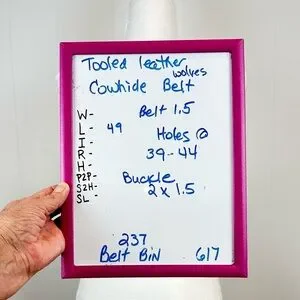 Tooled leather
wolves
Cowhide Belt
W- Belt 1.5
L- 49
I- Holes @
R- 39-44
H-
P2P- Buckle
S2H- 2 x 1.5
SL-
237
Belt BIN 617